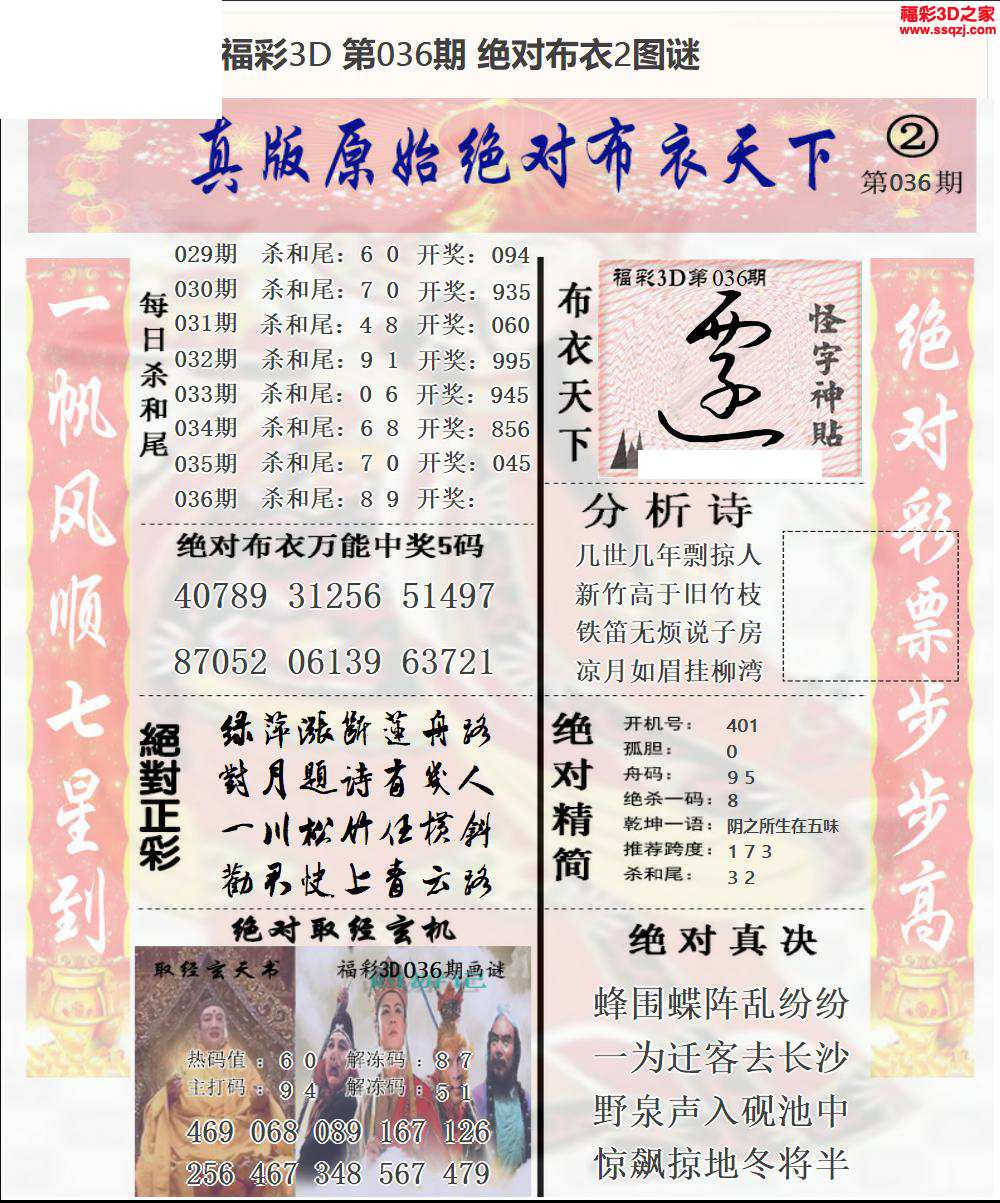 福彩3D之家
www.ssqzj.com
福彩3D 第036期 绝对布衣2图谜
真版原始绝对布衣天下
②
第036期
一帆风顺七星到
每日杀和尾
029期 杀和尾：6 0 开奖：094
030期 杀和尾：7 0 开奖：935
031期 杀和尾：4 8 开奖：060
032期 杀和尾：9 1 开奖：995
033期 杀和尾：0 6 开奖：945
034期 杀和尾：6 8 开奖：856
035期 杀和尾：7 0 开奖：045
036期 杀和尾：8 9 开奖：
绝对布衣万能中奖5码
40789 31256 51497
87052 06139 63721
絕對正彩
绿萍涨断莲舟路
對月題诗有幾人
一川松竹任横斜
勸君快上青云路
绝对取经玄机
取经玄天书
福彩3D036期画谜
热码值：6 0 解冻码：8 7
主打码：9 4 解冻码：5 1
469 068 089 167 126
256 467 348 567 479
布衣天下
福彩3D第036期
怪字神貼
分析诗
几世几年剽掠人
新竹高于旧竹枝
铁笛无烦说子房
凉月如眉挂柳湾
绝对精简
开机号： 401
孤胆： 0
舟码： 9 5
绝杀一码：8
乾坤一语：阴之所生在五味
推荐跨度：1 7 3
杀和尾： 3 2
绝对真决
蜂围蝶阵乱纷纷
一为迁客去长沙
野泉声入砚池中
惊飙掠地冬将半
绝对彩票步步高